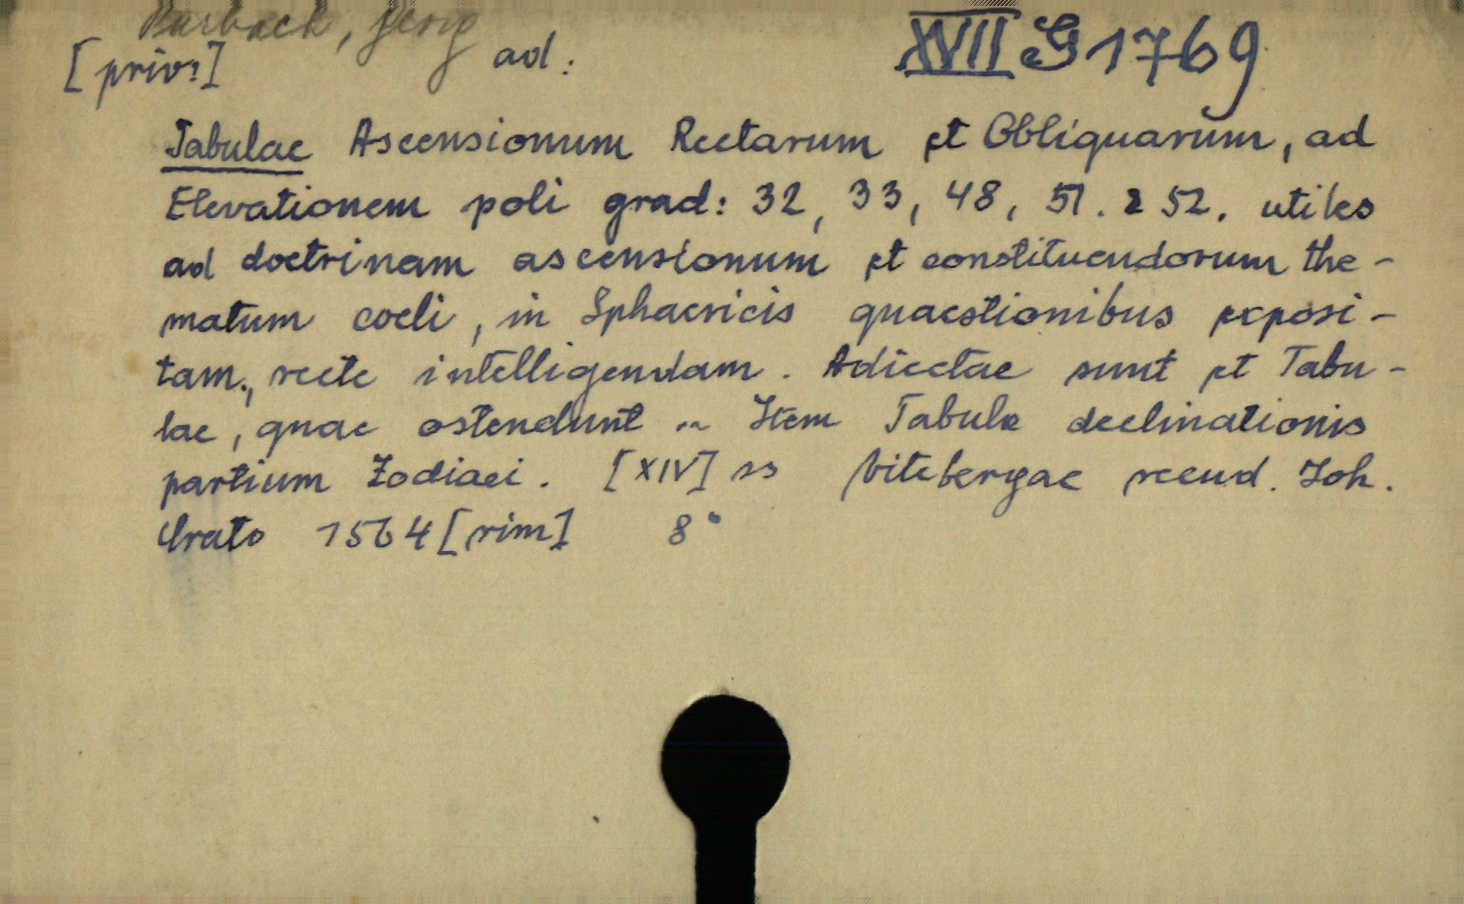 Purback, Georg
[priv?] ad: XVII G 1769
Tabulae Ascensionum Rectarum et Obliquarum, ad
Elevationem poli grad: 32, 33, 48, 51. & 52. utiles
ad doctrinam ascensionum et constituendorum the-
matum coeli, in Sphaericis quaestionibus exposi-
tam, recte intelligendam. Adiectae sunt et Tabu-
lae, quae ostendunt .. Item Tabula declinationis
partium Zodiaci. [XIV] ss Vitebergae recud. Joh.
Crato 1564 [rim] 8°